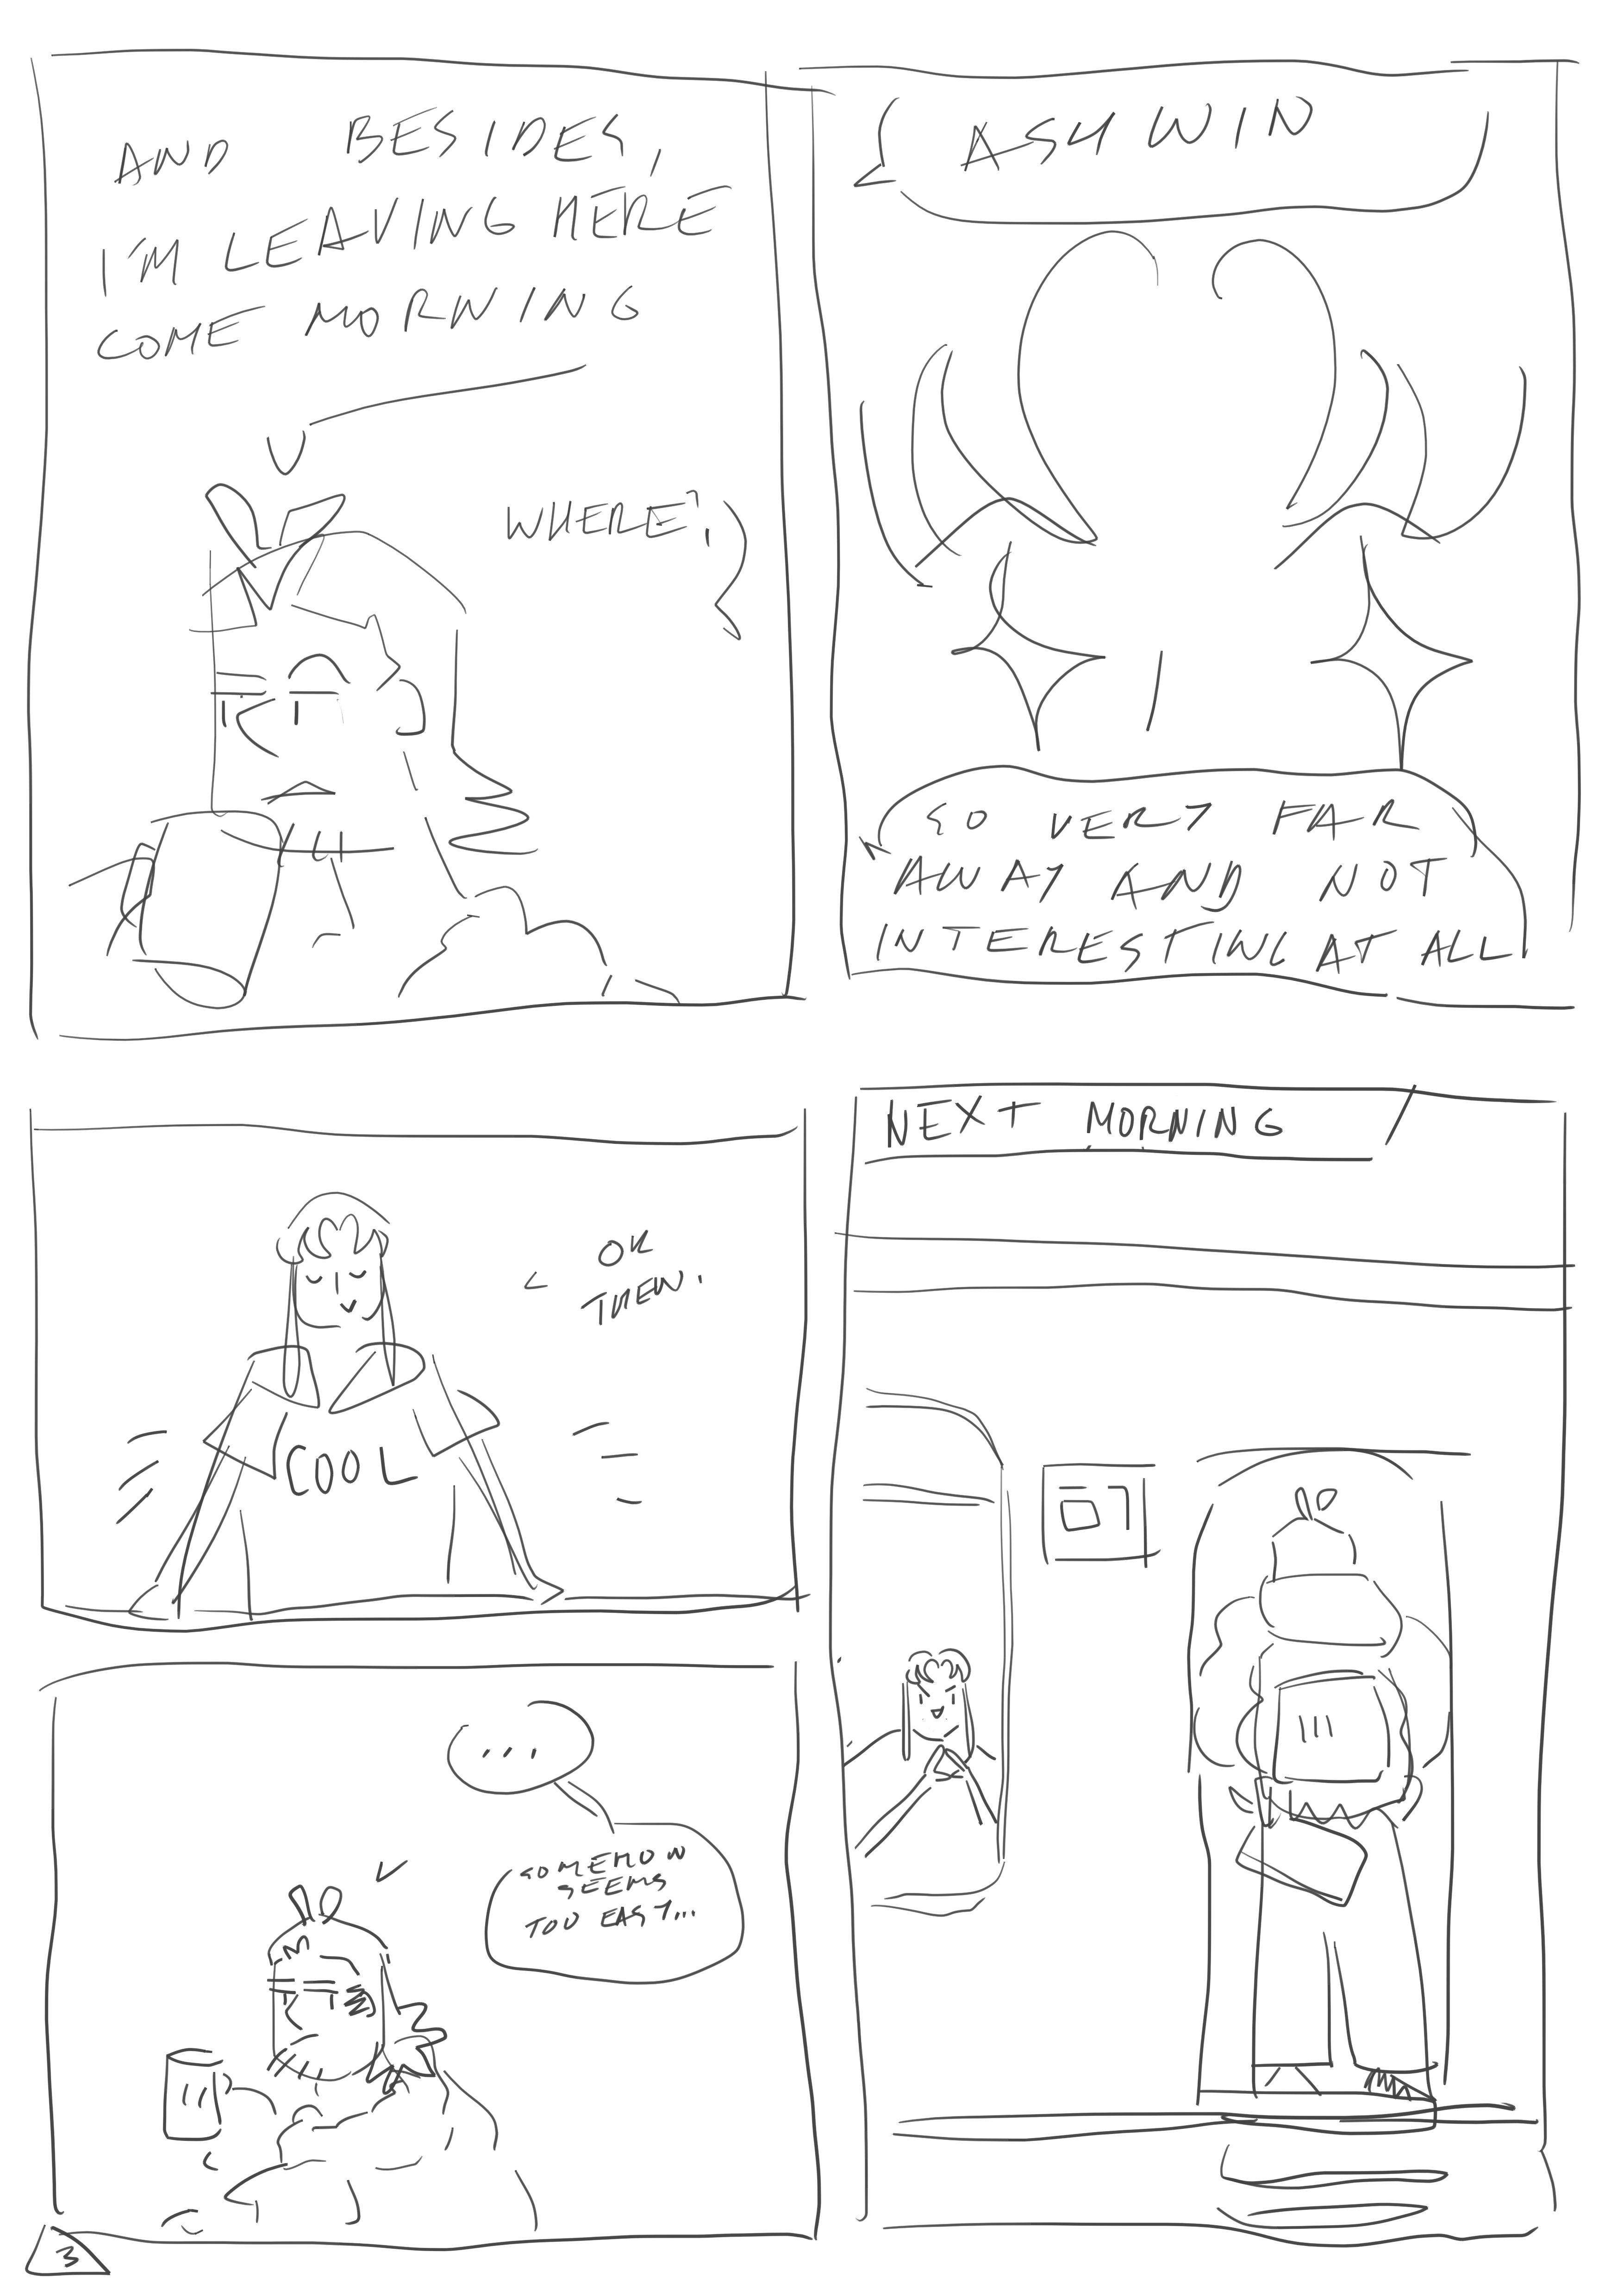 AND BESIDES,
I'M LEAVING HERE
COME MORNING
WHERE?
ASHWIN
SO VERY FAR
AWAY AND NOT
INTERESTING AT ALL
OK
THEN.
COOL
...
SOMEHOW
SEEMS
TOO EASY...
NEXT MORNING
07
3